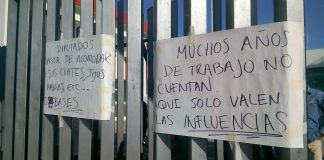 DIPUTADOS
BASTA DE ACOMODAR
SUS CUATES, HIJOS
ETC...
BASES
MUCHOS AÑOS
DE TRABAJO NO
CUENTAN
AQUI SOLO VALEN
LAS INFLUENCIAS